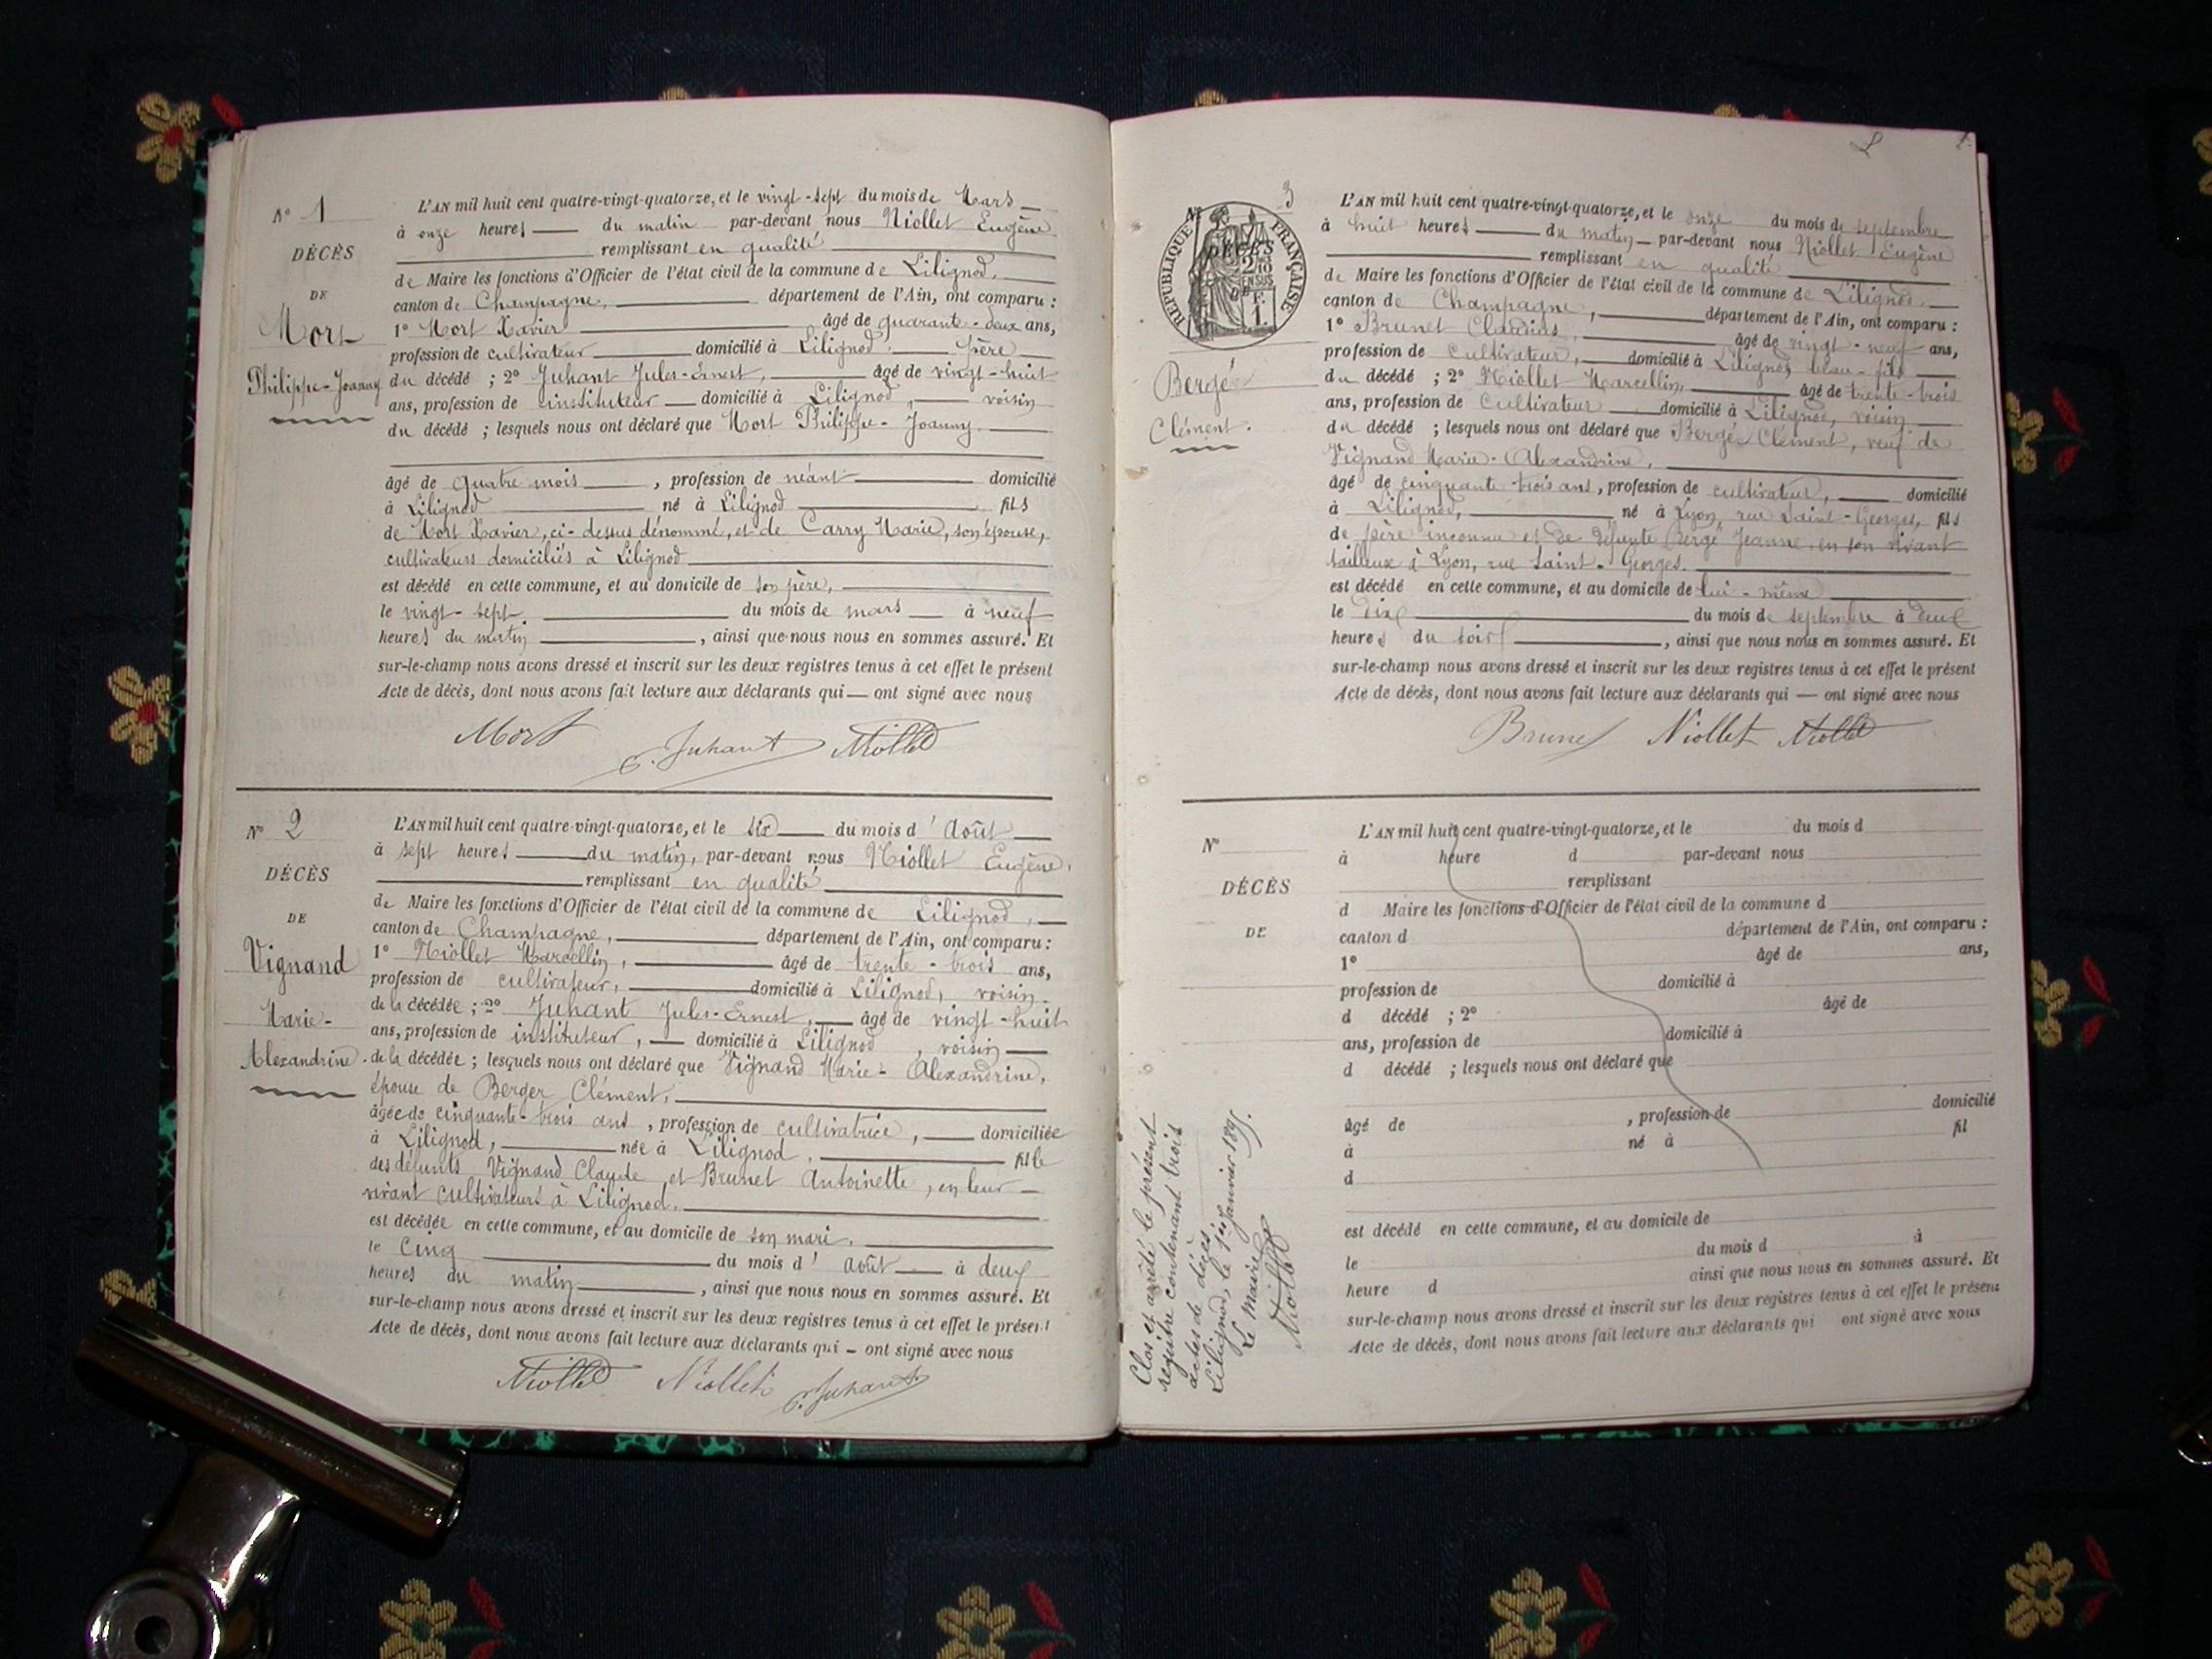 N° 1
DÉCÈS
DE
Mort
Philippe-Joanny
L'AN mil huit cent quatre-vingt-quatorze, et le vingt-sept du mois de Mars
à onze heures du matin par-devant nous Niollet Eugène
remplissant en qualité
de Maire les fonctions d'Officier de l'état civil de la commune de Lilignod.
canton de Champagne, département de l'Ain, ont comparu :
1° Mort Xavier âgé de quarante-deux ans,
profession de cultivateur domicilié à Lilignod, père
du décédé ; 2° Juhant Jules-Ernest, âgé de vingt-huit
ans, profession de instituteur domicilié à Lilignod, voisin
du décédé ; lesquels nous ont déclaré que Mort Philippe-Joanny.
âgé de quatre mois, profession de néant domicilié
à Lilignod né à Lilignod fils
de Mort Xavier, ci-dessus dénommé, et de Carry Marie, son épouse,
cultivateurs domiciliés à Lilignod
est décédé en cette commune, et au domicile de son père,
le vingt-sept. du mois de mars à neuf
heures du matin, ainsi que nous nous en sommes assuré. Et
sur-le-champ nous avons dressé et inscrit sur les deux registres tenus à cet effet le présent
Acte de décès, dont nous avons fait lecture aux déclarants qui — ont signé avec nous
Mort Juhant Niollet
N° 2
DÉCÈS
DE
Vignand
Marie-
Alexandrine
L'AN mil huit cent quatre-vingt-quatorze, et le six du mois d'Août
à sept heures du matin, par-devant nous Niollet Eugène,
remplissant en qualité
de Maire les fonctions d'Officier de l'état civil de la commune de Lilignod,
canton de Champagne, département de l'Ain, ont comparu :
1° Niollet Marcellin, âgé de trente-trois ans,
profession de cultivateur, domicilié à Lilignod, voisin.
de la décédée ; 2° Juhant Jules-Ernest, âgé de vingt-huit
ans, profession de instituteur, domicilié à Lilignod, voisin
de la décédée ; lesquels nous ont déclaré que Vignand Marie-Alexandrine,
épouse de Berger Clément,
âgée de cinquante-trois ans, profession de cultivatrice, domiciliée
à Lilignod, née à Lilignod, fille
des défunts Vignand Claude et Brunet Antoinette, en leur
vivant cultivateurs à Lilignod.
est décédée en cette commune, et au domicile de son mari.
le cinq du mois d'août à deux
heures du matin, ainsi que nous nous en sommes assuré. Et
sur-le-champ nous avons dressé et inscrit sur les deux registres tenus à cet effet le présent
Acte de décès, dont nous avons fait lecture aux déclarants qui — ont signé avec nous
Niollet Niollet Juhant
N° 3
RÉPUBLIQUE FRANÇAISE
DÉCÈS
DE
Bergé
Clément.
L'AN mil huit cent quatre-vingt-quatorze, et le onze du mois de septembre
à huit heures du matin par-devant nous Niollet Eugène
remplissant en qualité
de Maire les fonctions d'Officier de l'état civil de la commune de Lilignod,
canton de Champagne, département de l'Ain, ont comparu :
1° Brunet Claudius, âgé de vingt-neuf ans,
profession de cultivateur, domicilié à Lilignod, beau-fils
du décédé ; 2° Niollet Marcellin, âgé de trente-trois
ans, profession de cultivateur domicilié à Lilignod, voisin
du décédé ; lesquels nous ont déclaré que Bergé Clément, veuf de
Vignand Marie-Alexandrine,
âgé de cinquante trois ans, profession de cultivateur, domicilié
à Lilignod, né à Lyon, rue Saint-Georges, fils
de père inconnu et de défunte Bergé Jeanne, en son vivant
tailleuse à Lyon, rue Saint-Georges.
est décédé en cette commune, et au domicile de lui-même
le dix du mois de septembre à deux
heures du soir, ainsi que nous nous en sommes assuré. Et
sur-le-champ nous avons dressé et inscrit sur les deux registres tenus à cet effet le présent
Acte de décès, dont nous avons fait lecture aux déclarants qui — ont signé avec nous
Brunet Niollet Niollet
N°
DÉCÈS
DE
L'AN mil huit cent quatre-vingt-quatorze, et le du mois d
à heure d par-devant nous
remplissant
d Maire les fonctions d'Officier de l'état civil de la commune d
canton d département de l'Ain, ont comparu :
1° âgé de ans,
profession de domicilié à
d décédé ; 2° âgé de
ans, profession de domicilié à
d décédé ; lesquels nous ont déclaré que
âgé de , profession de domicilié
à né à fil
d
est décédé en cette commune, et au domicile de
le du mois d à
heure d ainsi que nous nous en sommes assuré. Et
sur-le-champ nous avons dressé et inscrit sur les deux registres tenus à cet effet le présent
Acte de décès, dont nous avons fait lecture aux déclarants qui ont signé avec nous
Clos et arrêté le présent
registre contenant trois
actes de décès.
Lilignod, le 1er janvier 1895.
Le Maire
Niollet